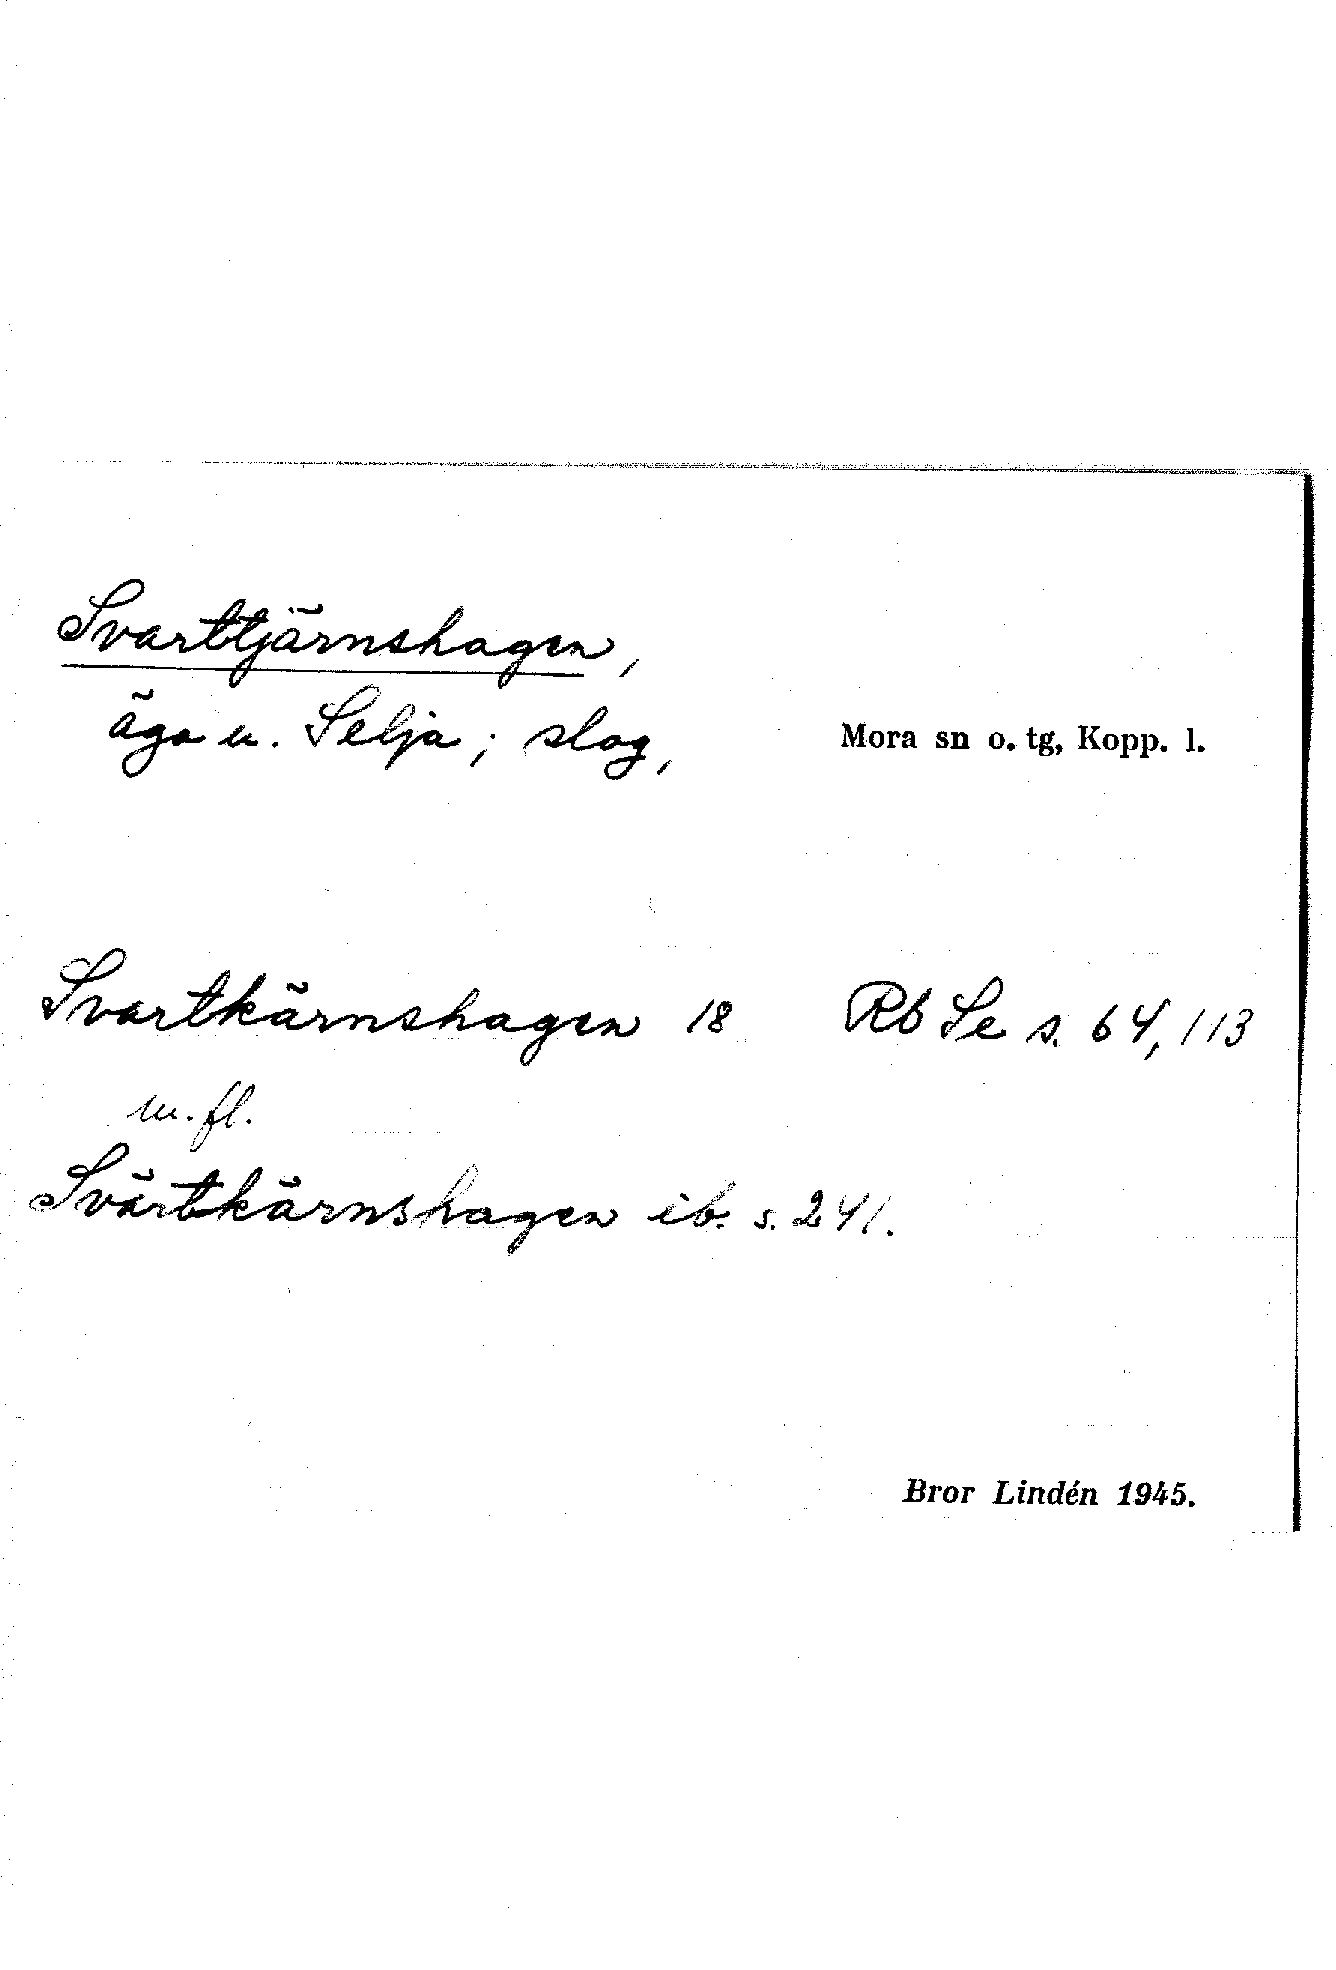 Svarttjärnshagen,
äga u. Selja; slog,
Mora sn o. tg, Kopp. l.
Svartkärnshagen 18 Rb Se s. 64, 113
m. fl.
Svärtkärnshagen ib. s. 241.
Bror Lindén 1945.